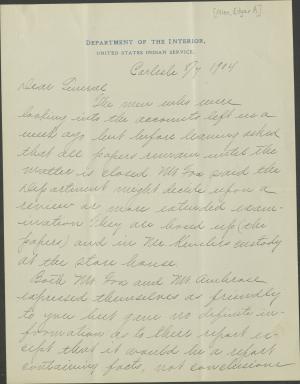 [Allen, Edgar A]
DEPARTMENT OF THE INTERIOR,
UNITED STATES INDIAN SERVICE.
Carlisle 8/4 1904
Dear General
The men who were
looking into the accounts left us a
week ago but before leaving asked
that all papers remain until the
matter is closed. Mr Fox said the
Department might decide upon a
review or more extended exam-
ination. They are boxed up (the
papers) and in Mr Kensler's custody
at the store house.
Both Mr Fox and Mr Ambrose
expressed themselves as friendly
to you but gave no definite in-
formation as to their report ex-
cept that it would be a report
containing facts, not conclusions